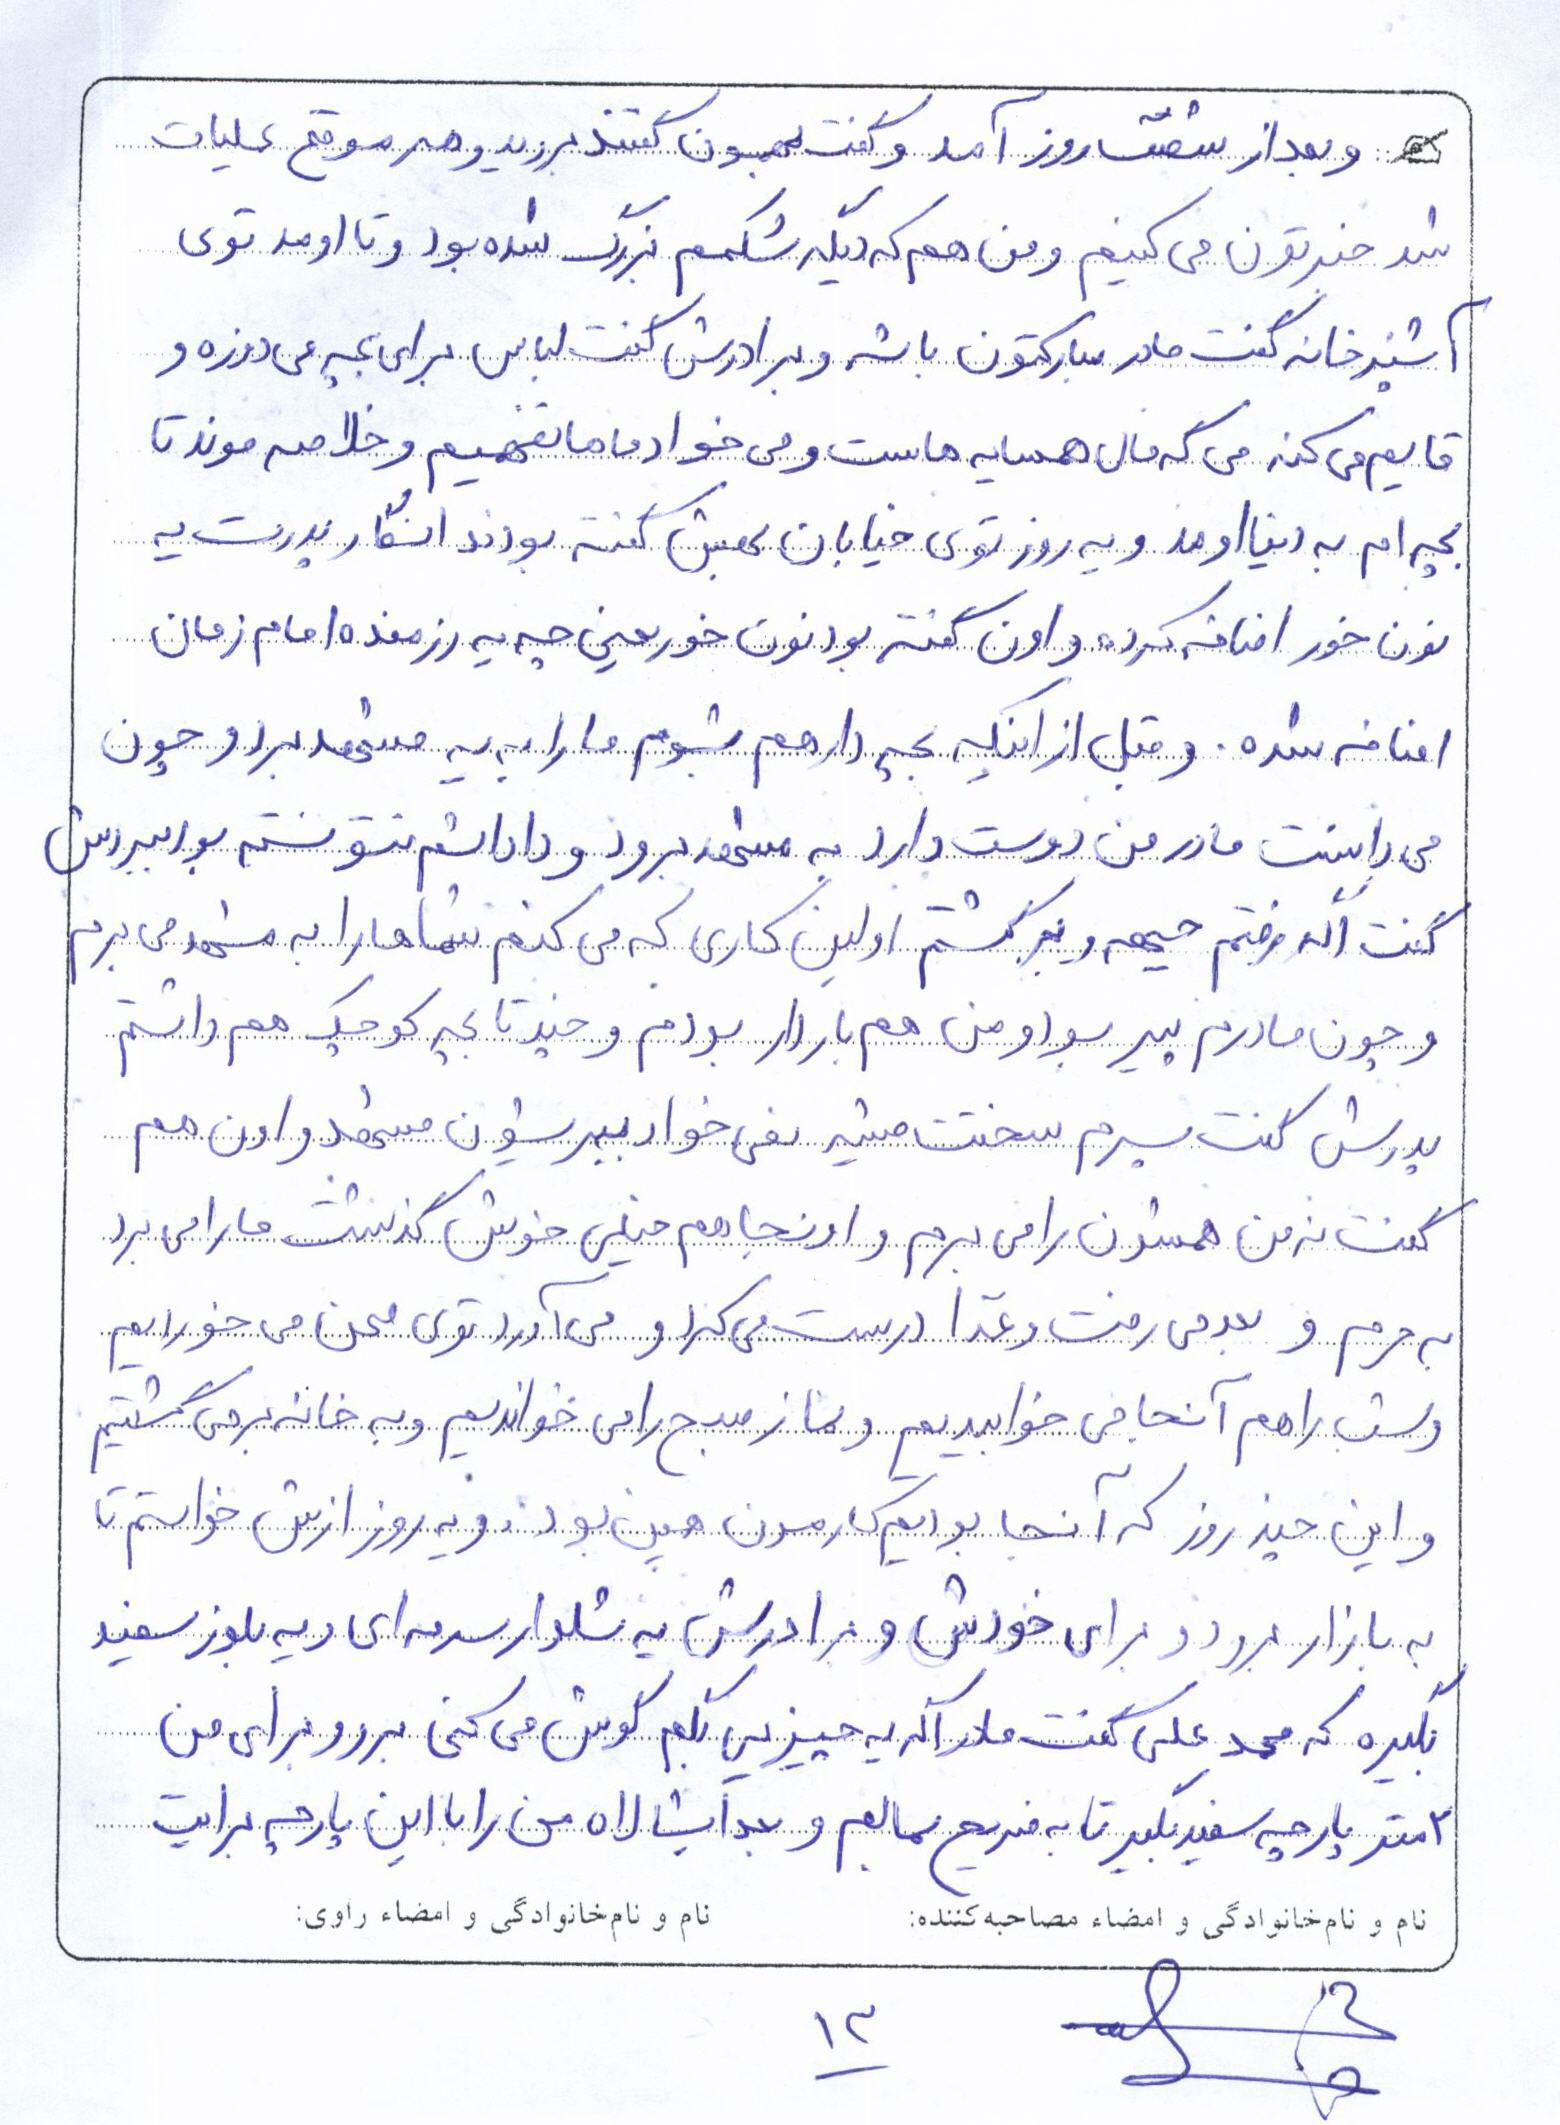 و بعد از شصت روز آمد و گفت بهمون گفتند برید و هر موقع عملیات
شد خبرتون می کنیم و من هم که دیگه شکمم بزرگ شده بود و تا اومد توی
آشپزخانه گفت مادر مبارکتون باشه و برادرش گفت لباس برای بچه می دوزه و
قایم می کنه می گه مال همسایه هاست و می خواد ماها نفهمیم و خلاصه موند تا
بچه ام به دنیا اومد و یه روز توی خیابان بهش گفته بودند انگار پدرت یه
نون خور اضافه کرده و اون گفته بود نون خور یعنی چه یه رزمنده امام زمان
اضافه شده. و قبل از اینکه بچه دار هم بشوم ما را به یه مشهد برد و چون
می دانست مادر من دوست دارد به مشهد برود و داداشم نتونسته بود ببردش
گفت اگه رفتم جبهه و برگشتم اولین کاری که می کنم شماها را به مشهد می برم
و چون مادرم پیر بود و من هم باردار بودم و چند تا بچه کوچک هم داشتم
پدرش گفت پسرم سختت میشه نمی خواد ببریشون مشهد و اون هم
گفت نه من همشون را می برم و اونجا هم خیلی خوش گذشت ما را می برد
به حرم و بعد می رفت و غذا درست می کرد و می آورد توی صحن می خوردیم
و شب را هم آنجا می خوابیدیم و نماز صبح را می خواندیم و به خانه برمی گشتیم
و این چند روز که آنجا بودیم کارمون همین بود. و یه روز ازش خواستم تا
به بازار برود و برای خودش و برادرش یه شلوار سرمه ای و یه بلوز سفید
بگیره که محمد علی گفت مادر اگه یه چیزی بگم گوش می کنی برو و برای من
۲ متر پارچه سفید بگیر تا به ضریح بمالیم و بعد ایشالاه من را با این پارچه برایت
نام و نام خانوادگی و امضاء مصاحبه کننده: نام و نام خانوادگی و امضاء راوی:
۱۳